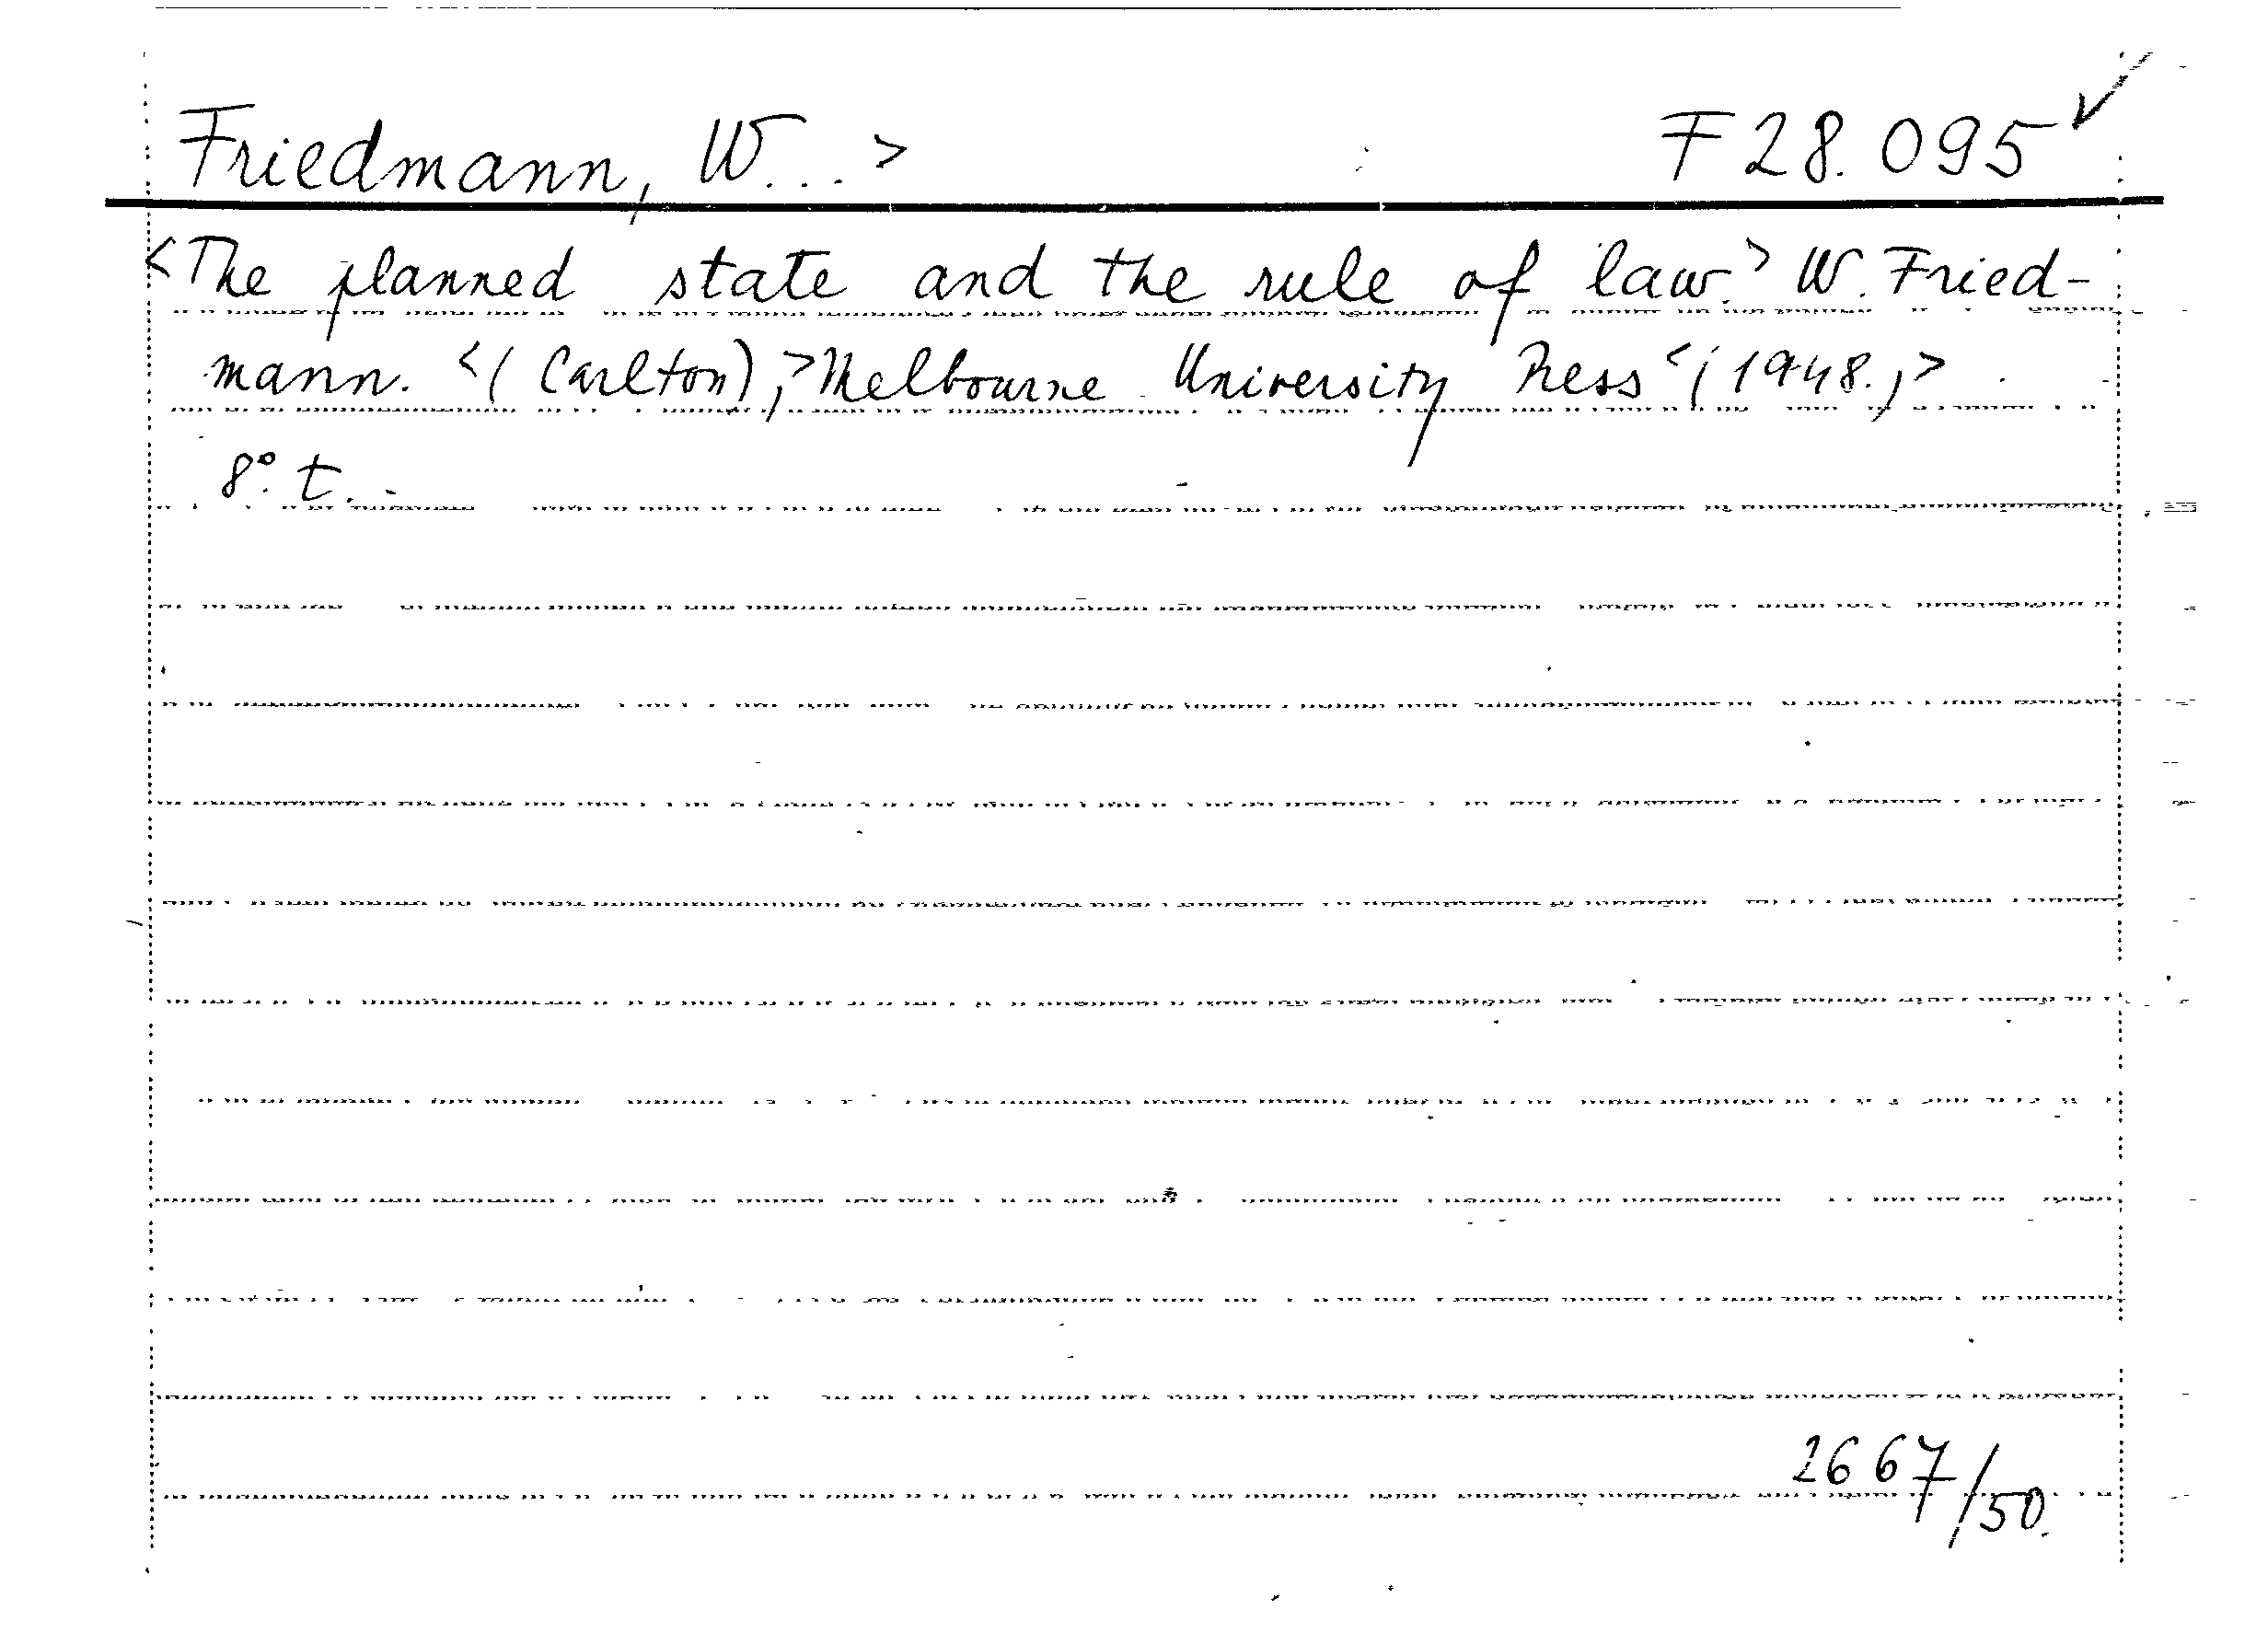 Friedmann, W...> F 28.095 ✓
<The planned state and the rule of law.> W. Fried-
mann. <(Carlton),> Melbourne University Press <(1948.)>
8°. t.
2667/50.